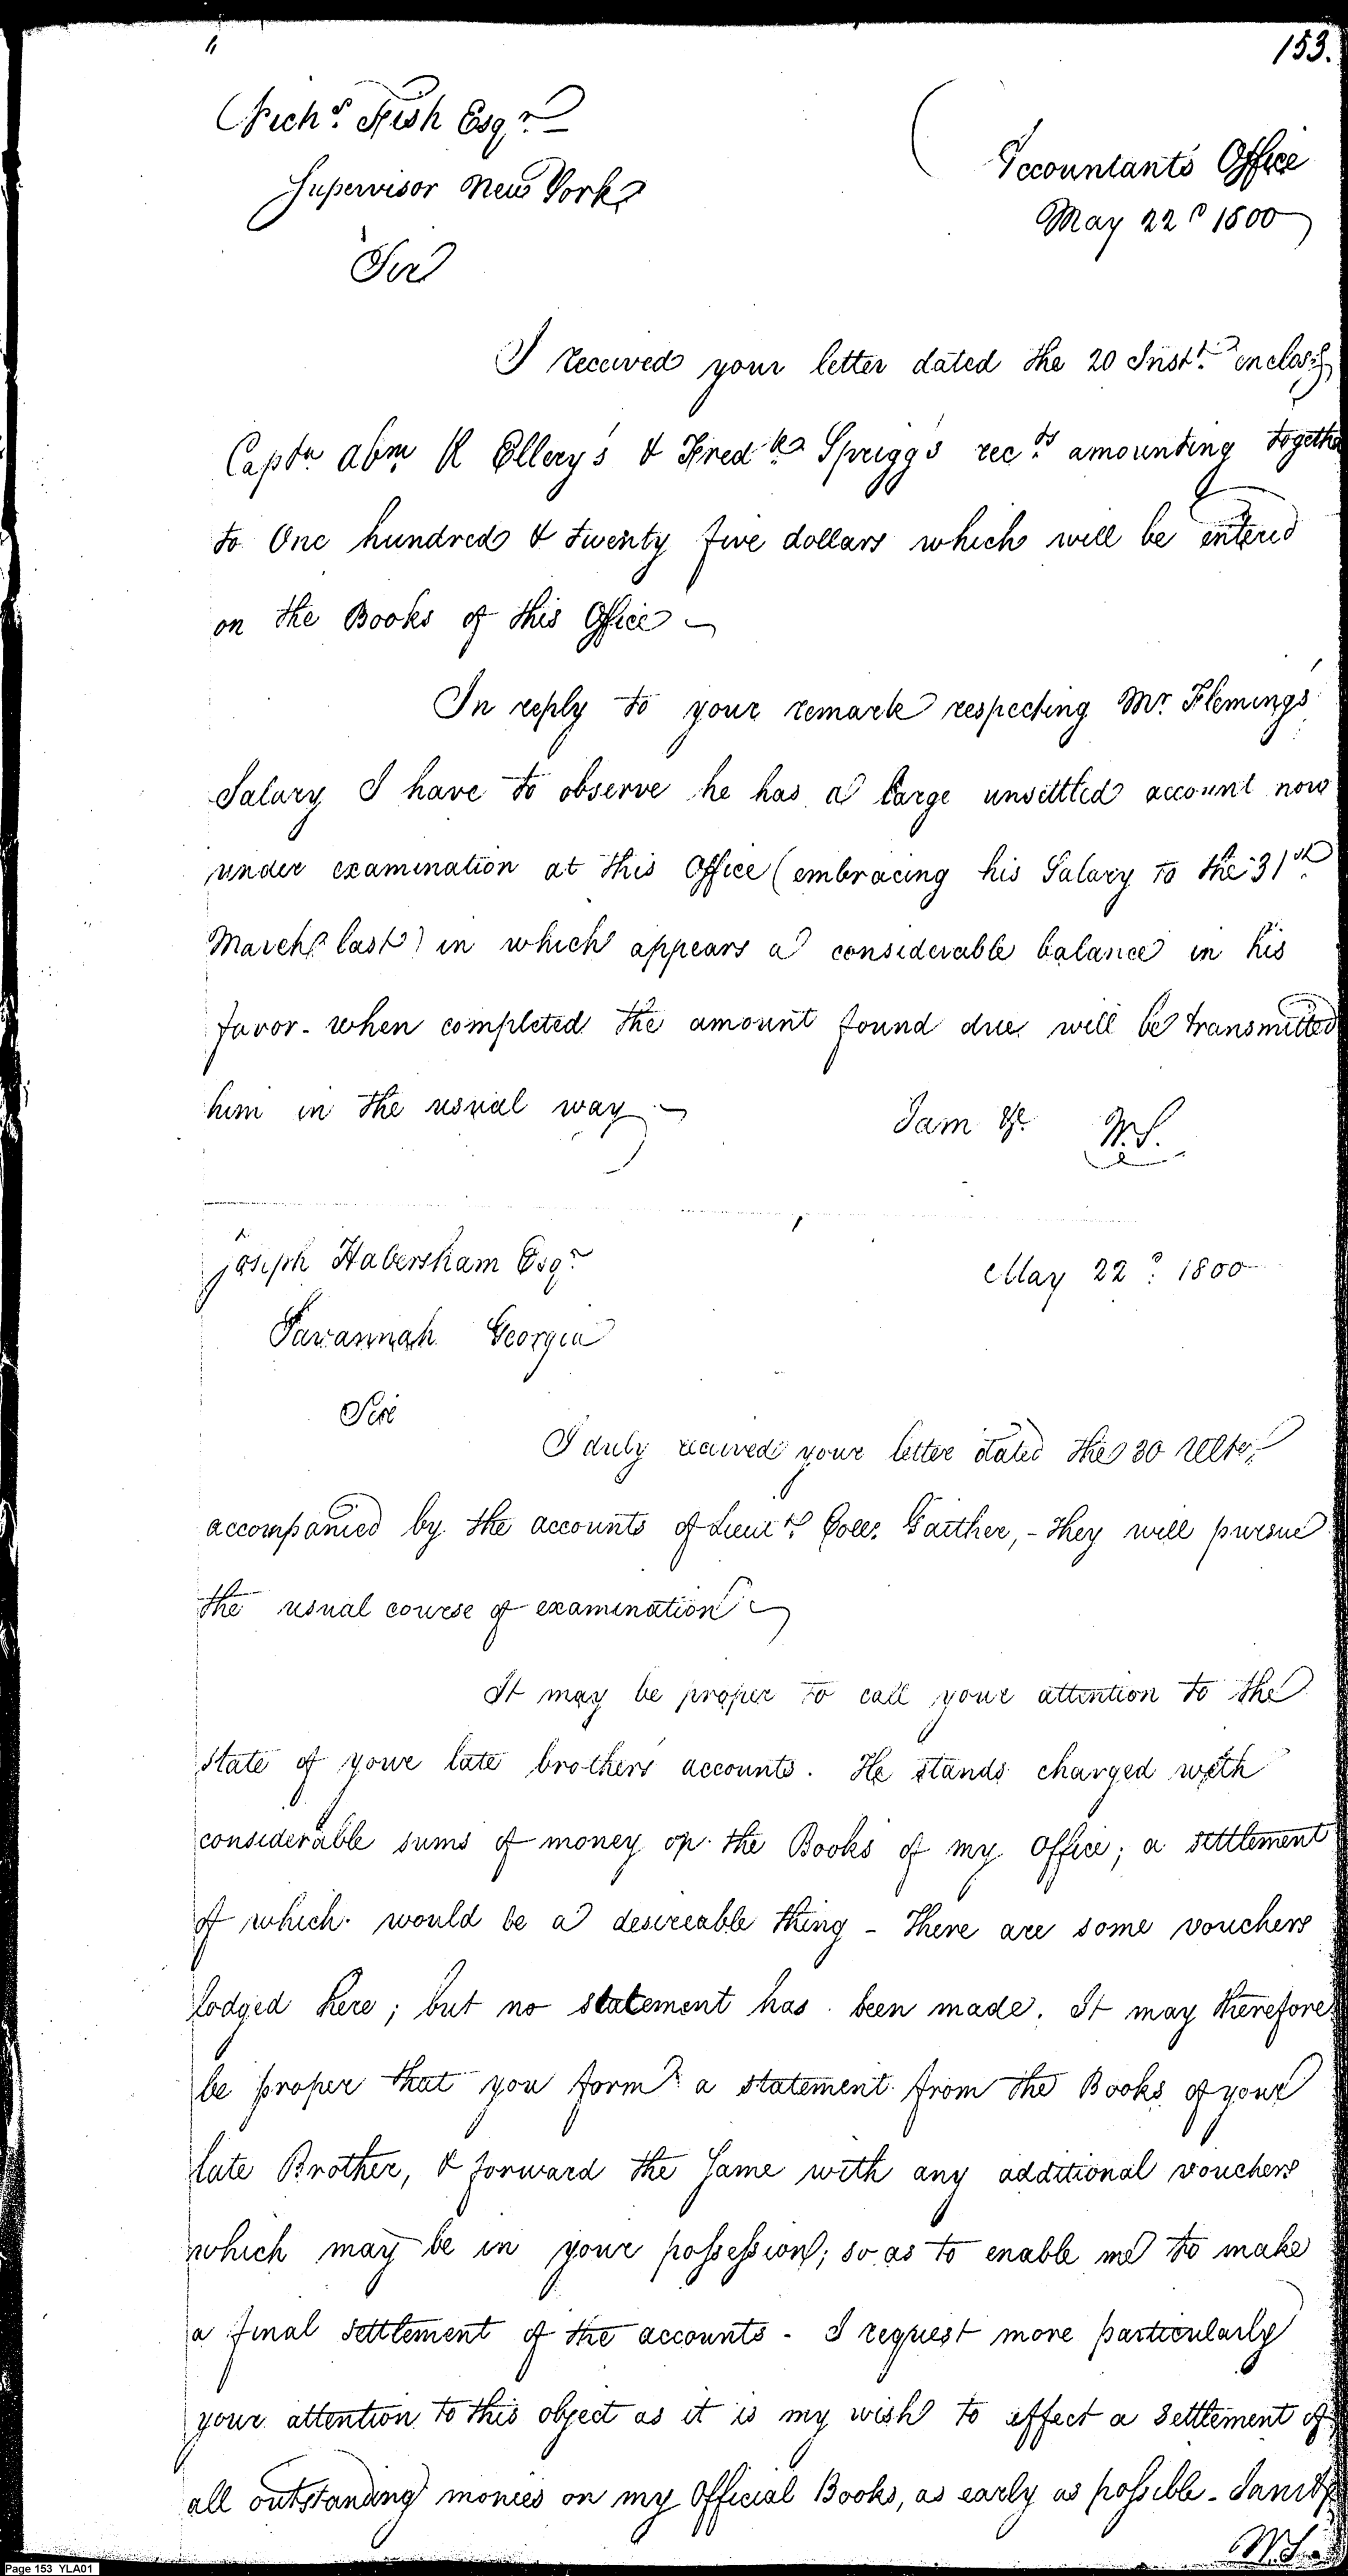 153.
Nichs. Fish Esqr.
Accountants Office
Supervisor New York
May 22d 1800
Sir
I received your letter dated the 20 Inst. enclosg
Captn Abm R Ellery's & Fredk Sprigg's rects amounting together
to One hundred & twenty five dollars which will be entered
on the Books of this Office
In reply to your remark respecting Mr. Flemings
Salary I have to observe he has a large unsettled account now
under examination at this Office (embracing his Salary to the 31st
March last) in which appears a considerable balance in his
favor - when completed the amount found due will be transmitted
him in the usual way
I am &c. W.S.
Joseph Habersham Esqr.
May 22d. 1800
Savannah Georgia
Sir
I duly received your letter dated the 30 Ulto.
accompanied by the accounts of Lieut. Coll. Gaither, - they will pursue
the usual course of examination
It may be proper to call your attention to the
state of your late brothers accounts. He stands charged with
considerable sums of money on the Books of my office; a settlement
of which would be a desireable thing - There are some vouchers
lodged here; but no statement has been made. It may therefore
be proper that you form a statement from the Books of your
late Brother, & forward the same with any additional vouchers
which may be in your possession; so as to enable me to make
a final settlement of the accounts - I request more particularly
your attention to this object as it is my wish to effect a settlement of
all outstanding monies on my Official Books, as early as possible - I am &c
W.S.
Page 153 YLA01